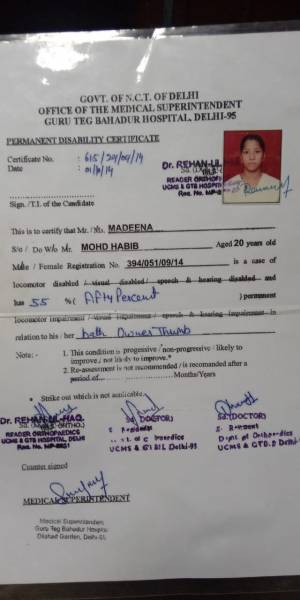 GOVT. OF N.C.T. OF DELHI
OFFICE OF THE MEDICAL SUPERINTENDENT
GURU TEG BAHADUR HOSPITAL, DELHI-95
PERMANENT DISABILITY CERTIFICATE
Certificate No. :
Date :
Dr. REHAN-UL
READER ORTHOP
UCMS & GTB HOSPIT
Sign./T.I. of the Candidate
This is to certify that Mr. /Ms. MADEENA
S/o / Do W/o Mr. MOHD HABIB Aged 20 years old
Male / Female Registration No. 394/051/09/14 is a case of
locomotor disabled / visual disabled / speech & hearing disabled and
has 55 % ( Fifty Percent ) permanent
locomotor impairment / visual impairment / speech & hearing impairment in
relation to his / her both Thumb
Note:- 1. This condition is progressive / non-progressive / likely to
improve / not likely to improve.*
2. Re-assessment is not recommended / is recomanded after a
period of Months/Years
* Strike out which is not applicable.
Dr. REHAN-UL-HAQ Sd. (DOCTOR) Sd. (DOCTOR)
READER ORTHOPAEDICS
UCMS & GTB HOSPITAL, DELHI Deptt. of Orthopaedics
UCMS & Delhi-95 UCMS & GTB
Counter signed
MEDICAL SUPERINTENDENT
Medical Superintendent
Guru Teg Bahadur Hospital
Dilshad Garden, Delhi-95